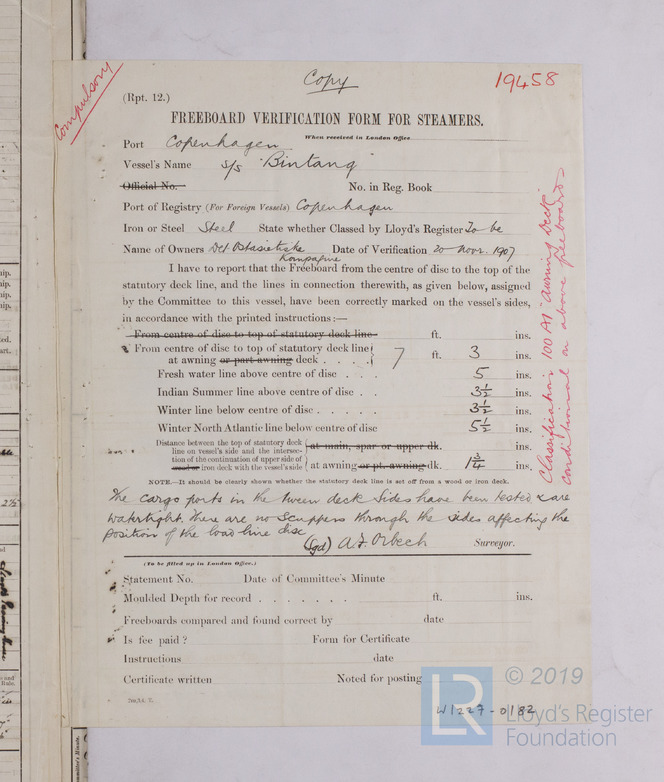 Copy
19458
Compulsory
(Rpt. 12.)
FREEBOARD VERIFICATION FORM FOR STEAMERS.
When received in London Office
Port Copenhagen
Vessel's Name S/S "Bintang"
Official No.
No. in Reg. Book
Port of Registry (For Foreign Vessels) Copenhagen
Iron or Steel Steel State whether Classed by Lloyd's Register To be
Name of Owners Det Ostasiatiske Kompagnie Date of Verification 20 Novr. 1907
I have to report that the Freeboard from the centre of disc to the top of the
statutory deck line, and the lines in connection therewith, as given below, assigned
by the Committee to this vessel, have been correctly marked on the vessel's sides,
in accordance with the printed instructions:—
From centre of disc to top of statutory deck line ft. ins.
From centre of disc to top of statutory deck line
at awning or part awning deck . . . . 7 ft. 3 ins.
Fresh water line above centre of disc . . . 5 ins.
Indian Summer line above centre of disc . . 3½ ins.
Winter line below centre of disc . . . . . 3½ ins.
Winter North Atlantic line below centre of disc 5½ ins.
Distance between the top of statutory deck
line on vessel's side and the intersec-
tion of the continuation of upper side of
wood or iron deck with the vessel's side
at main, spar or upper dk. ins.
at awning or pt. awning dk. 1¾ ins.
NOTE.—It should be clearly shown whether the statutory deck line is set off from a wood or iron deck.
The cargo ports in the tween deck sides have been tested & are
watertight. There are no scuppers through the sides affecting the
position of the load line disc
(sgd) A. F. Orbech Surveyor.
Classification 100 A1 "Awning Deck"
conditional on above freeboards
(To be filled up in London Office.)
Statement No. Date of Committee's Minute
Moulded Depth for record . . . . . . . ft. ins.
Freeboards compared and found correct by date
Is fee paid ? Form for Certificate
Instructions date
Certificate written Noted for posting
W1227-0182
LR
© 2019
Lloyd's Register
Foundation